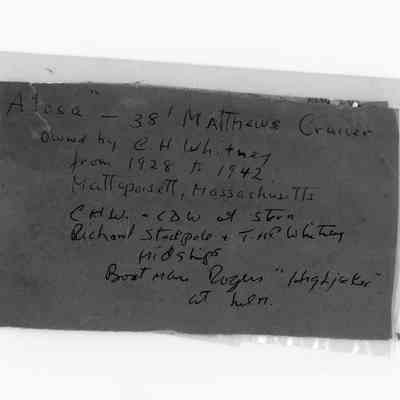 Alosa" - 38' Matthews Cruiser
owned by C.H Whitney
from 1928 to 1942.
Mattapoisett, Massachusetts
C.H.W. + CDW at stern
Richard Stackpole + Whitney
Midships
Boatman Rogers "Highjacker"
at helm.